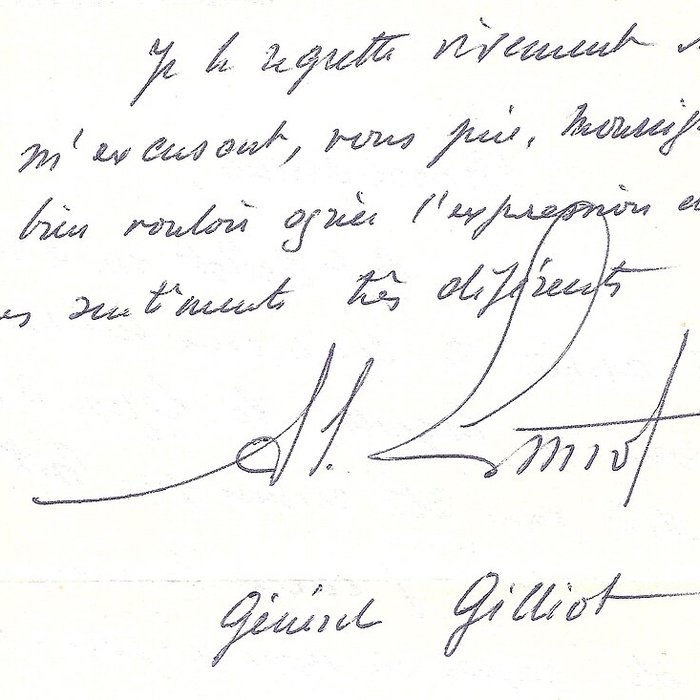 Je le regrette vivement
m'excusant, vous prie, Monsig
bien vouloir agréer l'expression
sentiments très déférents
Général Gilliot